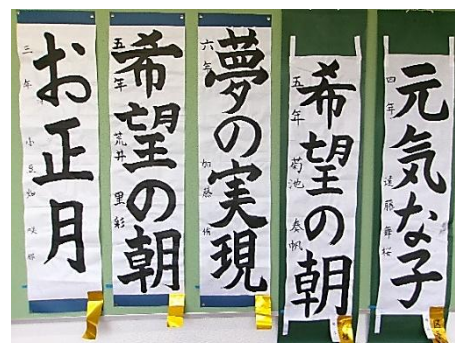 元気な子
四年 遠藤舞桜
希望の朝
五年 菊池 奏帆
夢の実現
六年 加藤
希望の朝
五年 荒井 里彩
お正月
三年